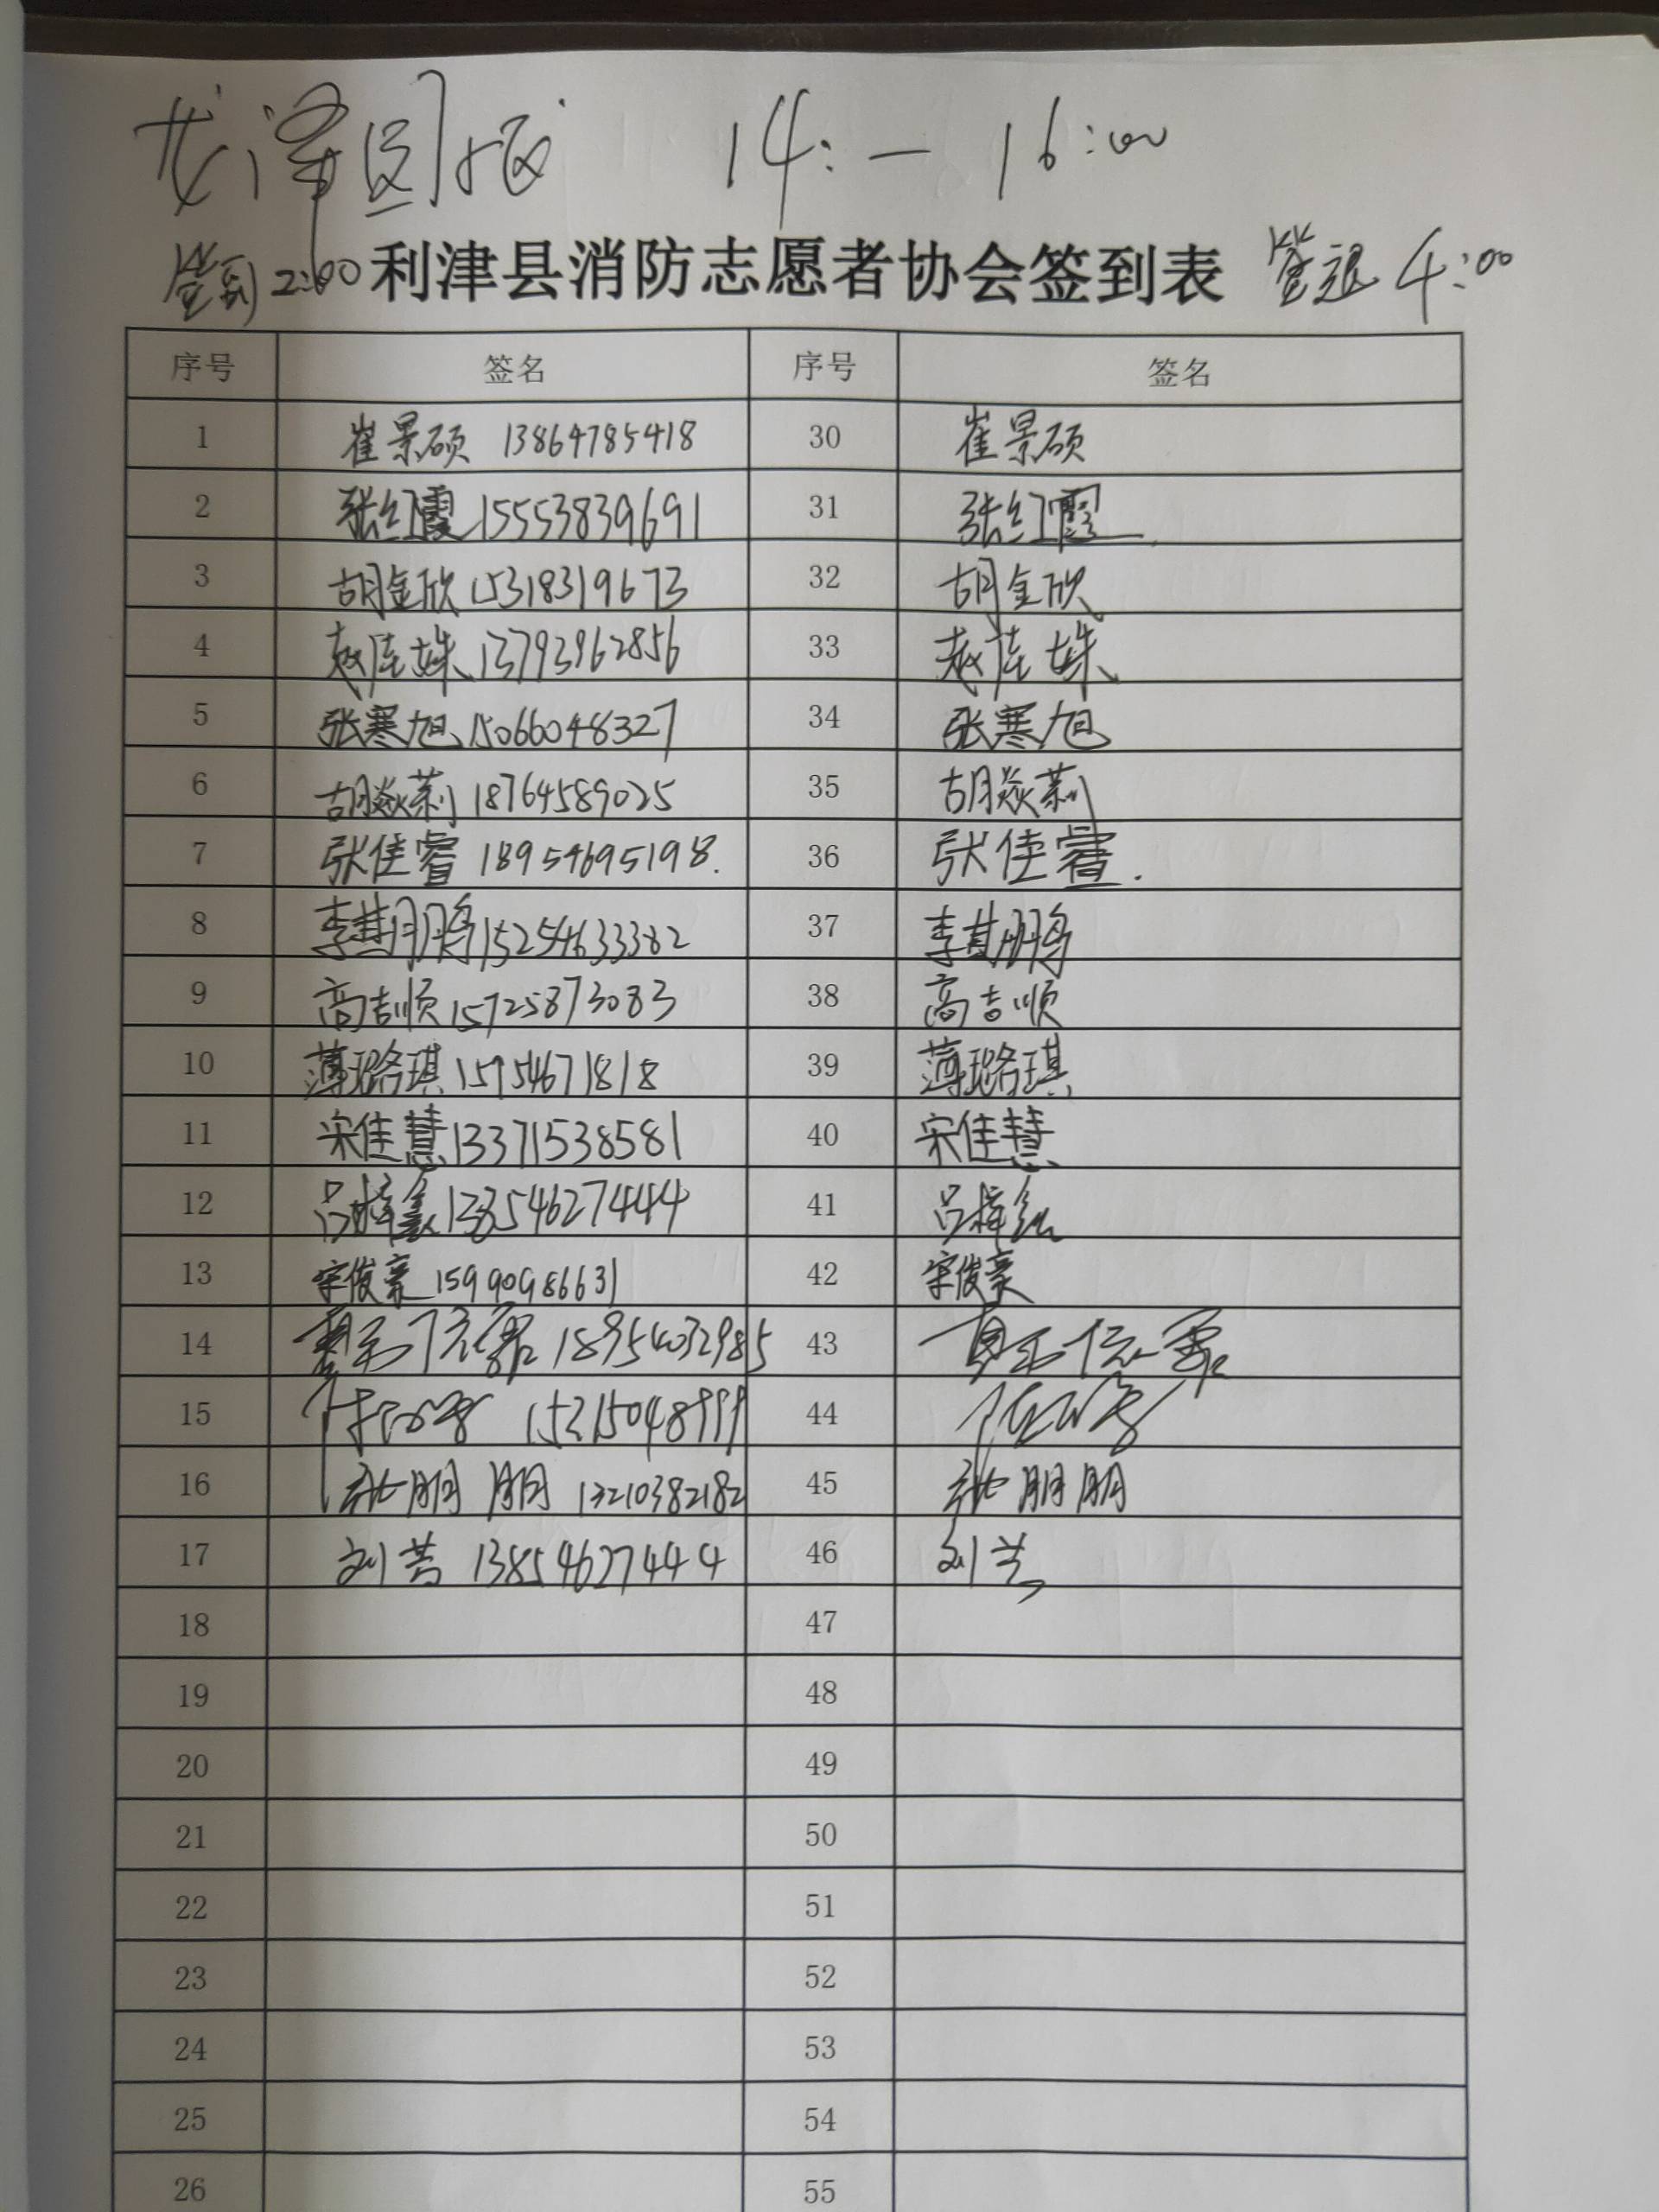 14: — 16:00
签到 2:00 利津县消防志愿者协会签到表 签退 4:00
序号 签名 序号 签名
1 崔景硕 13864785418 30 崔景硕
2 张红霞 15553839691 31 张红霞
3 胡金欣 15318319673 32 胡金欣
4 赵佳姝 13793962856 33 赵佳姝
5 张寒旭 15066048327 34 张寒旭
6 胡焱莉 18764589025 35 胡焱莉
7 张佳睿 18954695198. 36 张佳睿.
8 李慧鹏 15254633382 37 李慧鹏
9 高吉顺 15725873083 38 高吉顺
10 薄璐琪 15954671818 39 薄璐琪
11 宋佳慧 13371538581 40 宋佳慧
12 吕梓鑫 13854627444 41 吕梓鑫
13 宋俊豪 15990986631 42 宋俊豪
14 18954032985 43
15 15215048999 44
16 张朋朋 13210382182 45 张朋朋
17 刘芸 13854627444 46 刘芸
18 47
19 48
20 49
21 50
22 51
23 52
24 53
25 54
26 55